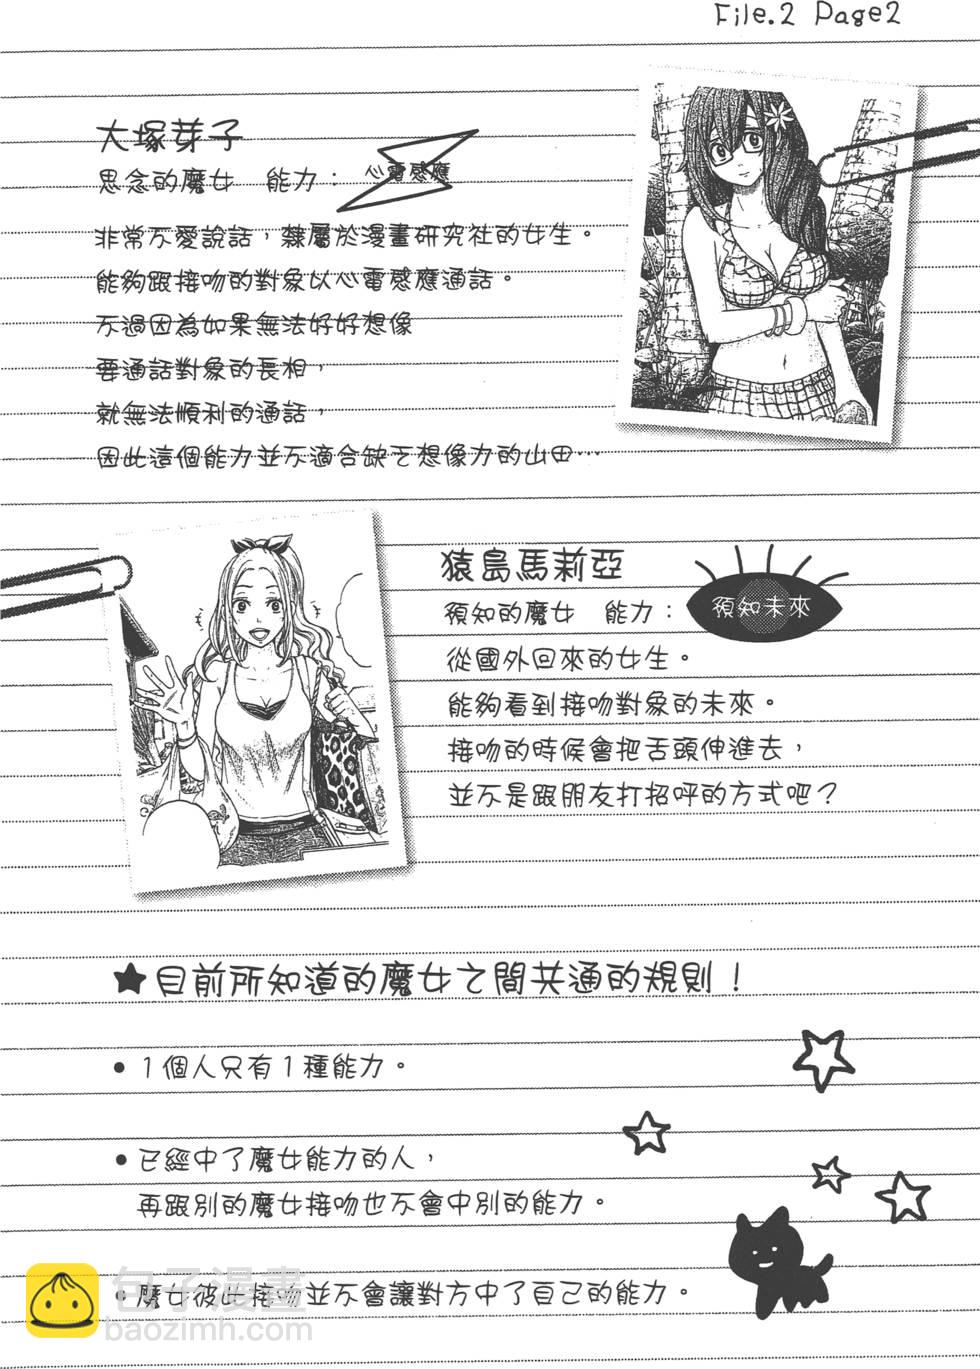 File.2 Page2
大塚芽子
思念的魔女　能力：心電感應
非常不愛說話，隸屬於漫畫研究社的女生。
能夠跟接吻的對象以心電感應通話。
不過因為如果無法好好想像
要通話對象的長相，
就無法順利的通話，
因此這個能力並不適合缺乏想像力的山田…
猿島馬莉亞
預知的魔女　能力：預知未來
從國外回來的女生。
能夠看到接吻對象的未來。
接吻的時候會把舌頭伸進去，
並不是跟朋友打招呼的方式吧？
★目前所知道的魔女之間共通的規則！
●1個人只有1種能力。
●已經中了魔女能力的人，
再跟別的魔女接吻也不會中別的能力。
●魔女彼此接吻並不會讓對方中了自己的能力。
包子漫畫
baozimh.com